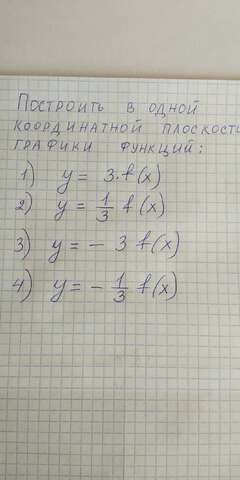 Построить в одной
координатной плоскости
графики функций:
1) y = 3·f(x)
2) y = 1/3 f(x)
3) y = - 3 f(x)
4) y = - 1/3 f(x)